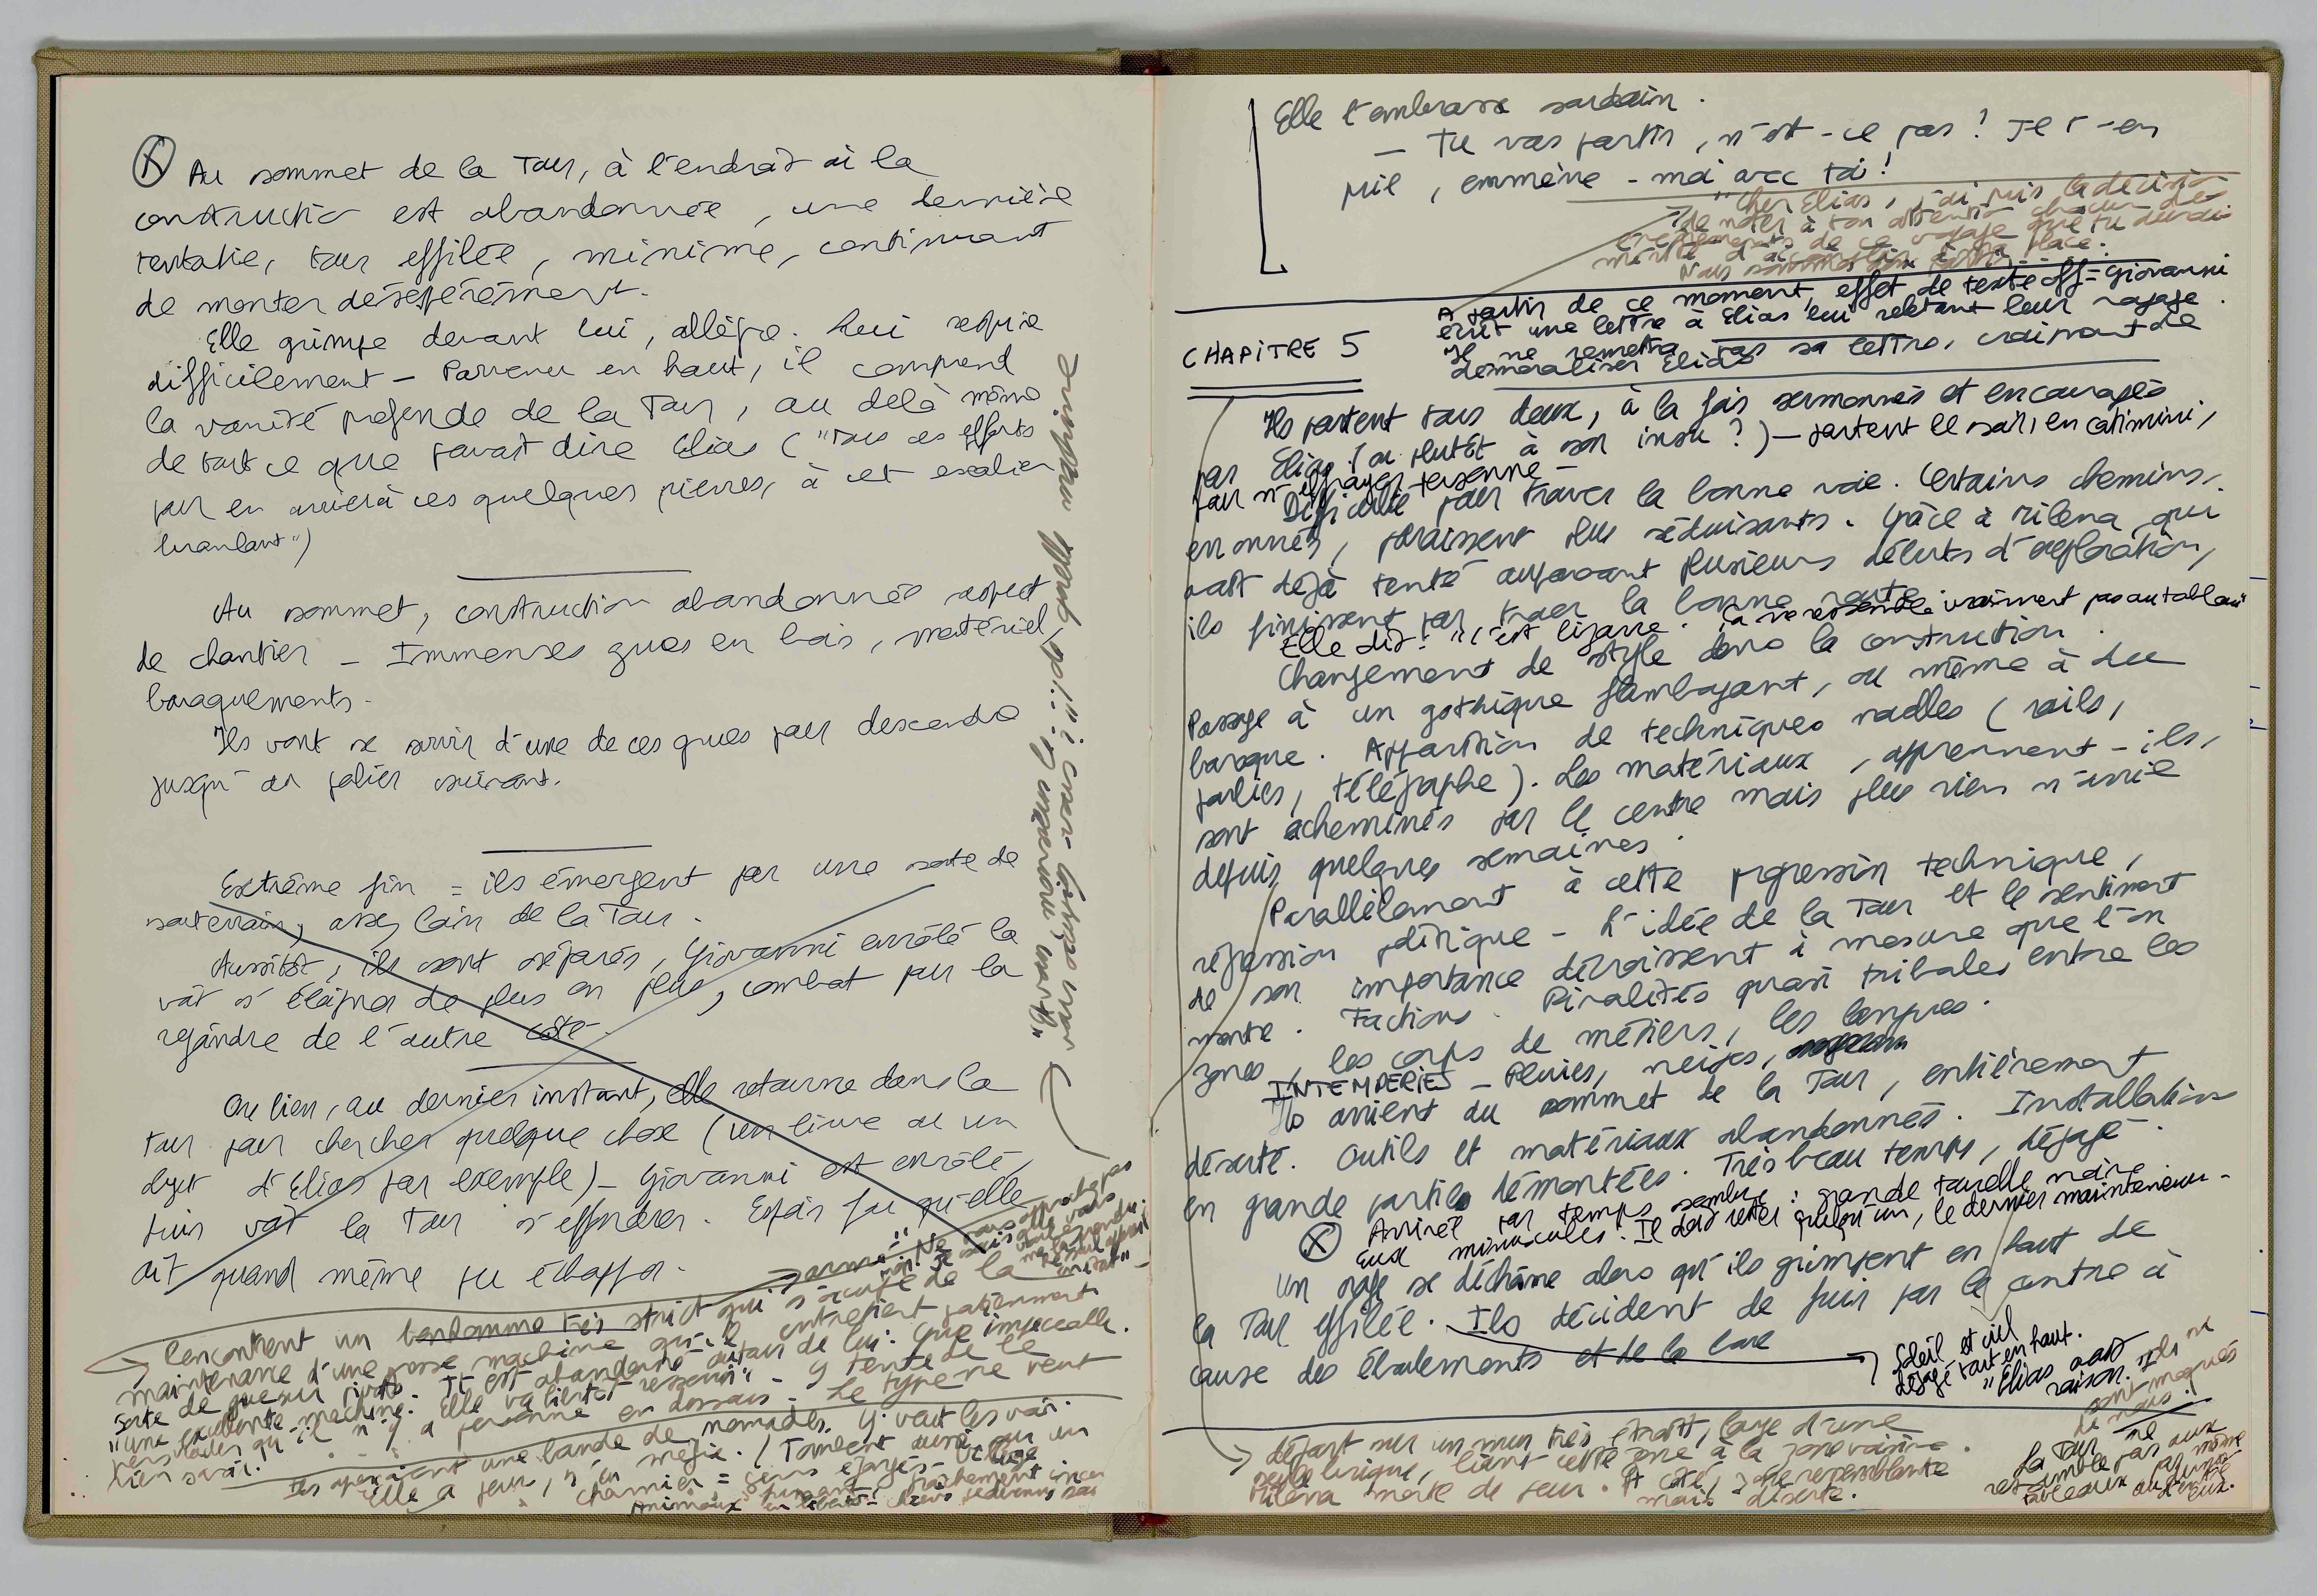 Ⓧ Au sommet de la Tour, à l'endroit où la
construction est abandonnée, une dernière
tentative, tour effilée, minime, continuant
de monter désespérément.
Elle grimpe devant lui, allègre. Lui respire
difficilement – Parvenu en haut, il comprend
la vanité profonde de la Tour, au delà même
de tout ce que pouvait dire Elias ("Tous ces efforts
pour en arriver à ces quelques pierres, à cet escalier
branlant")
Au sommet, construction abandonnée aspect
de chantier – Immenses grues en bois, matériel,
baraquements.
Ils vont se servir d'une de ces grues pour descendre
jusqu'au palier suivant.
Extrême fin = ils émergent par une sorte de
souterrain, assez loin de la Tour.
Aussitôt, ils sont séparés, Giovanni enrôlé la
voit s'éloigner de plus en plus, combat pour la
rejoindre de l'autre côté.
Ou bien, au dernier instant, elle retourne dans la
Tour pour chercher quelque chose (un livre ou un
objet d'Elias par exemple) – Giovanni est enrôlé,
puis voit la Tour s'effondrer. Espoir fou qu'elle
ait quand même pu échapper.
"Avous monsieur le
vous avais-vous ?" "De quelle machine
Rencontrent un bonhomme très strict qui s'occupe de la
maintenance d'une grosse machine qu'il entretient patiemment
sorte de grue sur pivots. Tt est abandonné autour de lui. Grue impeccable.
"une excellente machine. Elle va bientôt resservir". G tente de le
persuader qu'il n'y a personne en dessous. Le type ne veut
rien savoir.
Ils aperçoivent une bande de nomades. G. veut les voir.
Elle a peur, s'en méfie. (Tombent aussi sur un
charnier = gens égorgés – village
Animaux en liberté – chiens redevenus
Elle l'embrasse soudain.
– Tu vas partir, n'est-ce pas ? Je t'en
prie, emmène-moi avec toi !
"Cher Elias, j'ai pris la décision
de noter à ton attention chacun des
événements de ce voyage que tu aurais
mérité d'accomplir à ma place.
Nous sommes
A partir de ce moment, effet de texte off = Giovanni
écrit une lettre à Elias lui relatant leur voyage.
Il ne remettra pas sa lettre, craignant de
démoraliser Elias
CHAPITRE 5
Ils partent tous deux, à la fois sermonnés et encouragés
par Elias (ou plutôt à son insu ?) – partent le soir, en catimini,
pour n'effrayer personne –
Difficulté pour trouver la bonne voie. Certains chemins,
erronés, paraissent plus séduisants. Grâce à Milena qui
avait déjà tenté auparavant plusieurs débuts d'exploration,
ils finissent par trouver la bonne route.
Elle dit : "c'est bizarre. ça ne ressemble vraiment pas au tableau
Changement de style dans la construction.
Passage à un gothique flamboyant, ou même à du
baroque. Apparition de techniques nouvelles (rails,
poulies, télégraphe). Les matériaux, apprennent-ils,
sont acheminés par le centre mais plus rien n'arrive
depuis quelques semaines.
Parallèlement à cette progression technique,
régression politique – L'idée de la Tour et le sentiment
de son importance décroissent à mesure que l'on
monte. Factions. Rivalités quasi tribales entre les
zones, les corps de métiers, les langues.
INTEMPERIES – Pluies, neiges,
Ils arrivent au sommet de la Tour, entièrement
déserté. Outils et matériaux abandonnés. Installations
en grande partie démontées. Très beau temps, dégagé.
Ⓧ Arrivée par temps sombre : grande tourelle noire
Eux minuscules. Il doit rester quelqu'un, le dernier mainteneur –
Un orage se déchaîne alors qu'ils grimpent en haut de
la Tour effilée. Ils décident de fuir par le centre à
cause des éboulements et de la lave
Soleil et ciel
dégagé tout en haut.
"Elias avait
raison. Ils se
sont moqués
de nous"
La Tour ne
ressemble pas aux
tableaux
départ sur un mur très étroit, large d'une
seule brique, liant cette zone à la zone voisine.
Milena morte de peur. A côté, zone ressemblante
mais déserte.